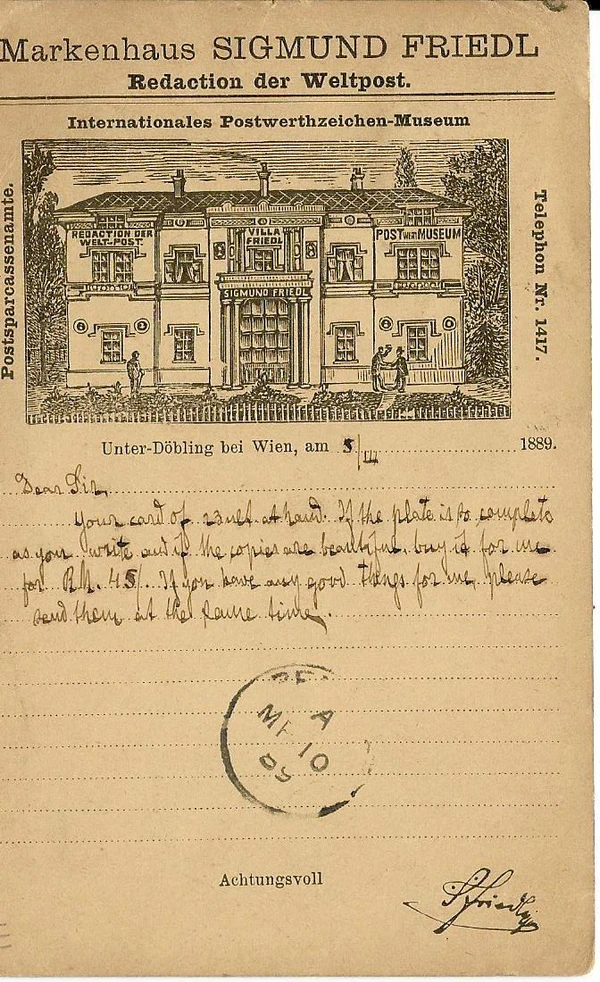 Markenhaus SIGMUND FRIEDL
Redaction der Weltpost.
Internationales Postwerthzeichen-Museum
Postsparcassenamte.
REDACTION DER
WELT-POST.
VILLA
FRIEDL
POSTWERTMUSEUM
SIGMUND FRIEDL
Telephon Nr. 1417.
Unter-Döbling bei Wien, am 5/III 1889.
Dear Sir,
Your card of 23 at hand. If the plate is so complete
as you write and if the copies are beautiful, buy it for me
for RM. 45/. If you have any good things for me please
send them at the same time.
A
10
Achtungsvoll
SFriedl